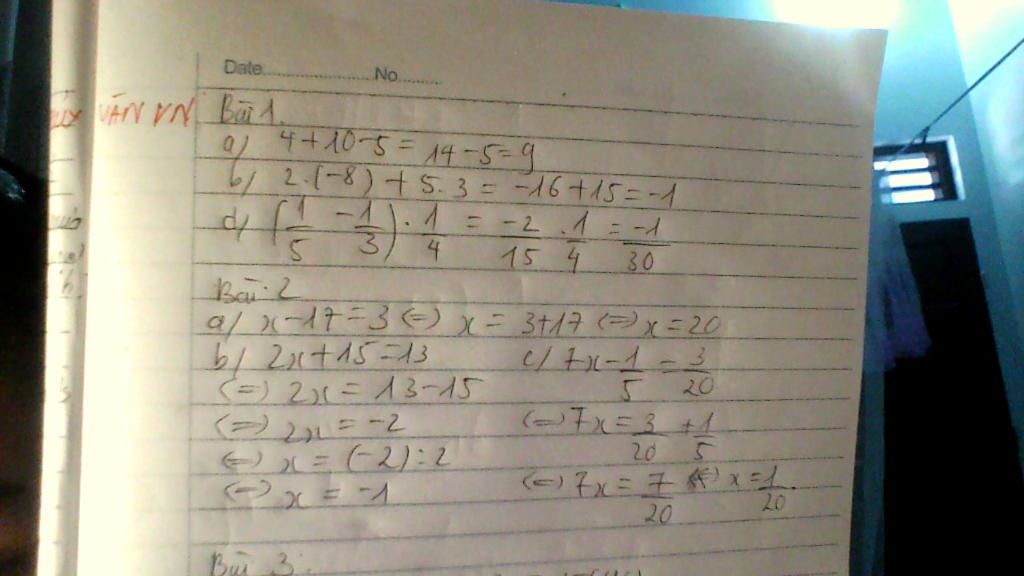 Date.....................No.......
VĂN VN
Bài 1.
a/ 4+10-5 = 14-5=9
b/ 2.(-8) + 5.3 = -16+15=-1
d/ (1/5 - 1/3) . 1/4 = -2/15 . 1/4 = -1/30
Bài 2
a/ x-17=3 <=> x = 3+17 <=> x=20
b/ 2x+15=13 c/ 7x-1/5 = 3/20
<=> 2x = 13-15
<=> 2x = -2 <=> 7x = 3/20 + 1/5
<=> x = (-2):2
<=> x = -1 <=> 7x = 7/20 <=> x = 1/20.
Bài 3: